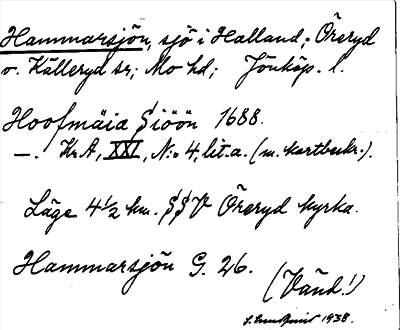 Hammarsjön, sjö i Halland; Öreryd
o. Källeryd sr; Mo hd; Jönköp. l.
Hoofmäia Siöön 1688.
—. Kr.A, XXI, No 4, lit. a. (m. kartbeskr.).
Läge 4 1/2 km. SSV Öreryd kyrka.
Hammarsjön G. 26.
(Vänd!)
1938.